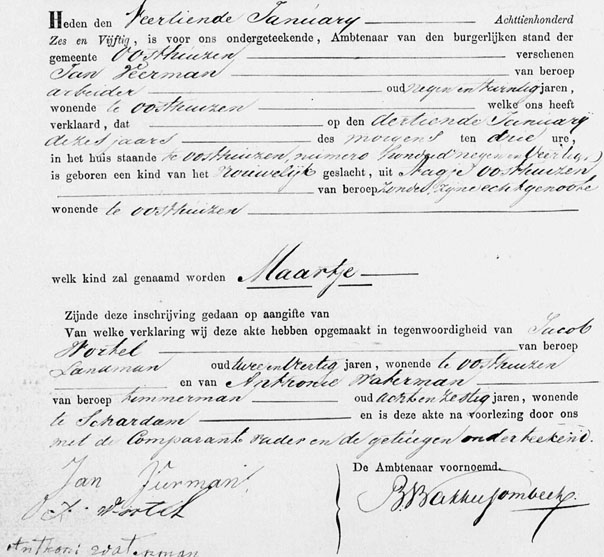 Heden den Veertiende January Achttienhonderd
Zes en Vijftig, is voor ons ondergeteekende, Ambtenaar van den burgerlijken stand der
gemeente Oosthuizen verschenen
Jan Veerman van beroep
arbeider oud negen en twintig jaren,
wonende te Oosthuizen welke ons heeft
verklaard, dat op den dertiende January
dezes jaars des morgens ten drie ure,
in het huis staande te Oosthuizen, numero honderd negen en veertig
is geboren een kind van het vrouwelijk geslacht, uit Aagje Oosthuizen
van beroep zonder, zijne echtgenoote
wonende te Oosthuizen
welk kind zal genaamd worden Maartje
Zijnde deze inschrijving gedaan op aangifte van
Van welke verklaring wij deze akte hebben opgemaakt in tegenwoordigheid van Jacob
Wortel van beroep
Landman oud twee en veertig jaren, wonende te Oosthuizen
en van Anthonie Waterman
van beroep timmerman oud acht en zestig jaren, wonende
te Schardam en is deze akte na voorlezing door ons
met de Comparant vader en de getuigen onderteekend.
De Ambtenaar voornoemd.
Jan
Wortel
Anthoni Waterman